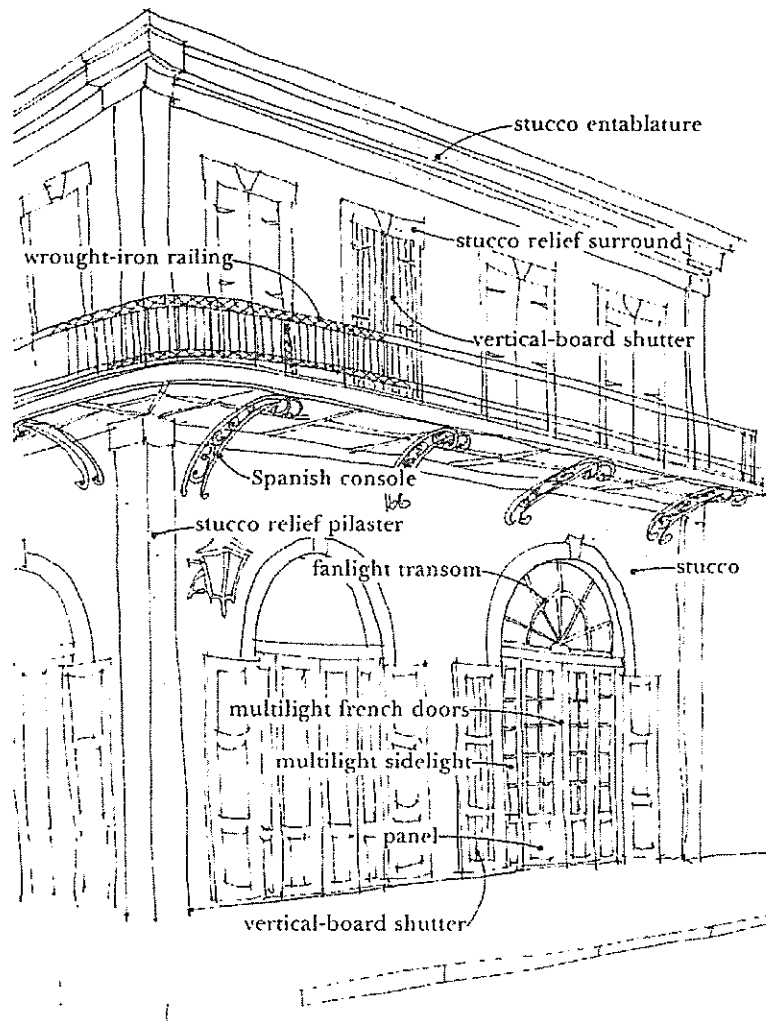 stucco entablature
stucco relief surround
wrought-iron railing
vertical-board shutter
Spanish console
166
stucco relief pilaster
fanlight transom
stucco
multilight french doors
multilight sidelight
panel
vertical-board shutter